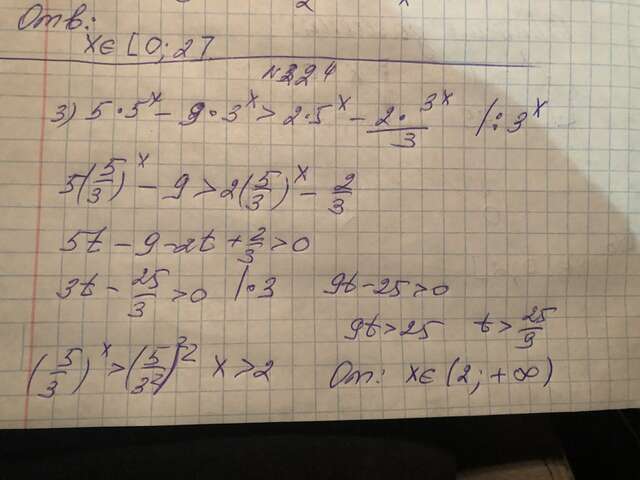 Отв:
x∈[0; 2]
№ 224
3) 5·5^x − 9·3^x > 2·5^x − (2·3^x)/3 |:3^x
5(5/3)^x − 9 > 2(5/3)^x − 2/3
5t − 9 − 2t + 2/3 > 0
3t − 25/3 > 0 |·3 9t − 25 > 0
9t > 25 t > 25/9
(5/3)^x > (5/3)^2 x > 2 Отв: x∈(2; +∞)